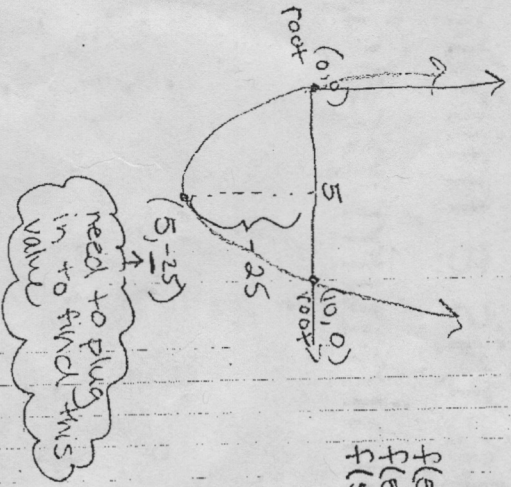 root
(0,0)
5
(10, 0)
root
-25
(5, -25)
need to plug
in to find this
value
f(5
f(5
f(5